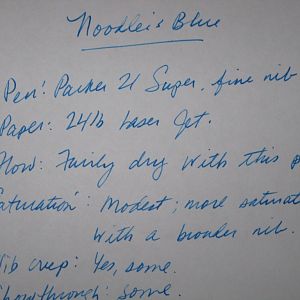 Noodler's Blue
Pen: Parker 21 Super, fine nib
Paper: 24lb Laser Jet.
Flow: Fairly dry with this p
Saturation: Modest; more saturat
with a broader nib.
Nib creep: Yes, some.
Showthrough: some.